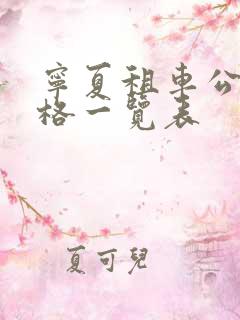 寧夏租車公
格一覽表
夏可兒